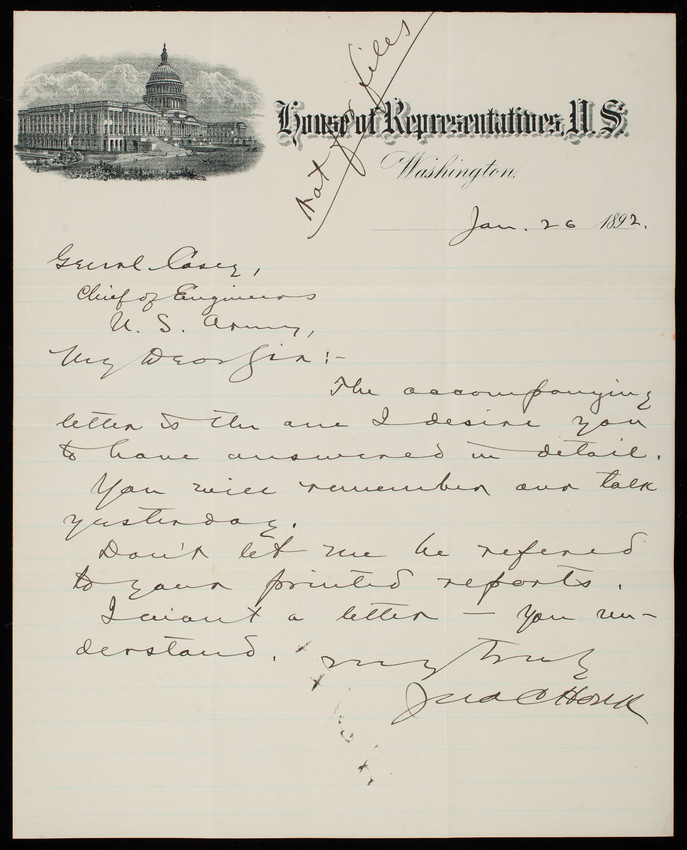 not for files
House of Representatives, U.S.
Washington,
Jan. 26 1892.
General Casey,
Chief of Engineers
U. S. Army,
My Dear Sir:-
The accompanying
letter is the one I desire you
to have answered in detail.
You will remember our talk
yesterday.
Don't let me be refered
to your printed reports.
I want a letter — You un-
derstand.
Very Truly
Jno C Houk